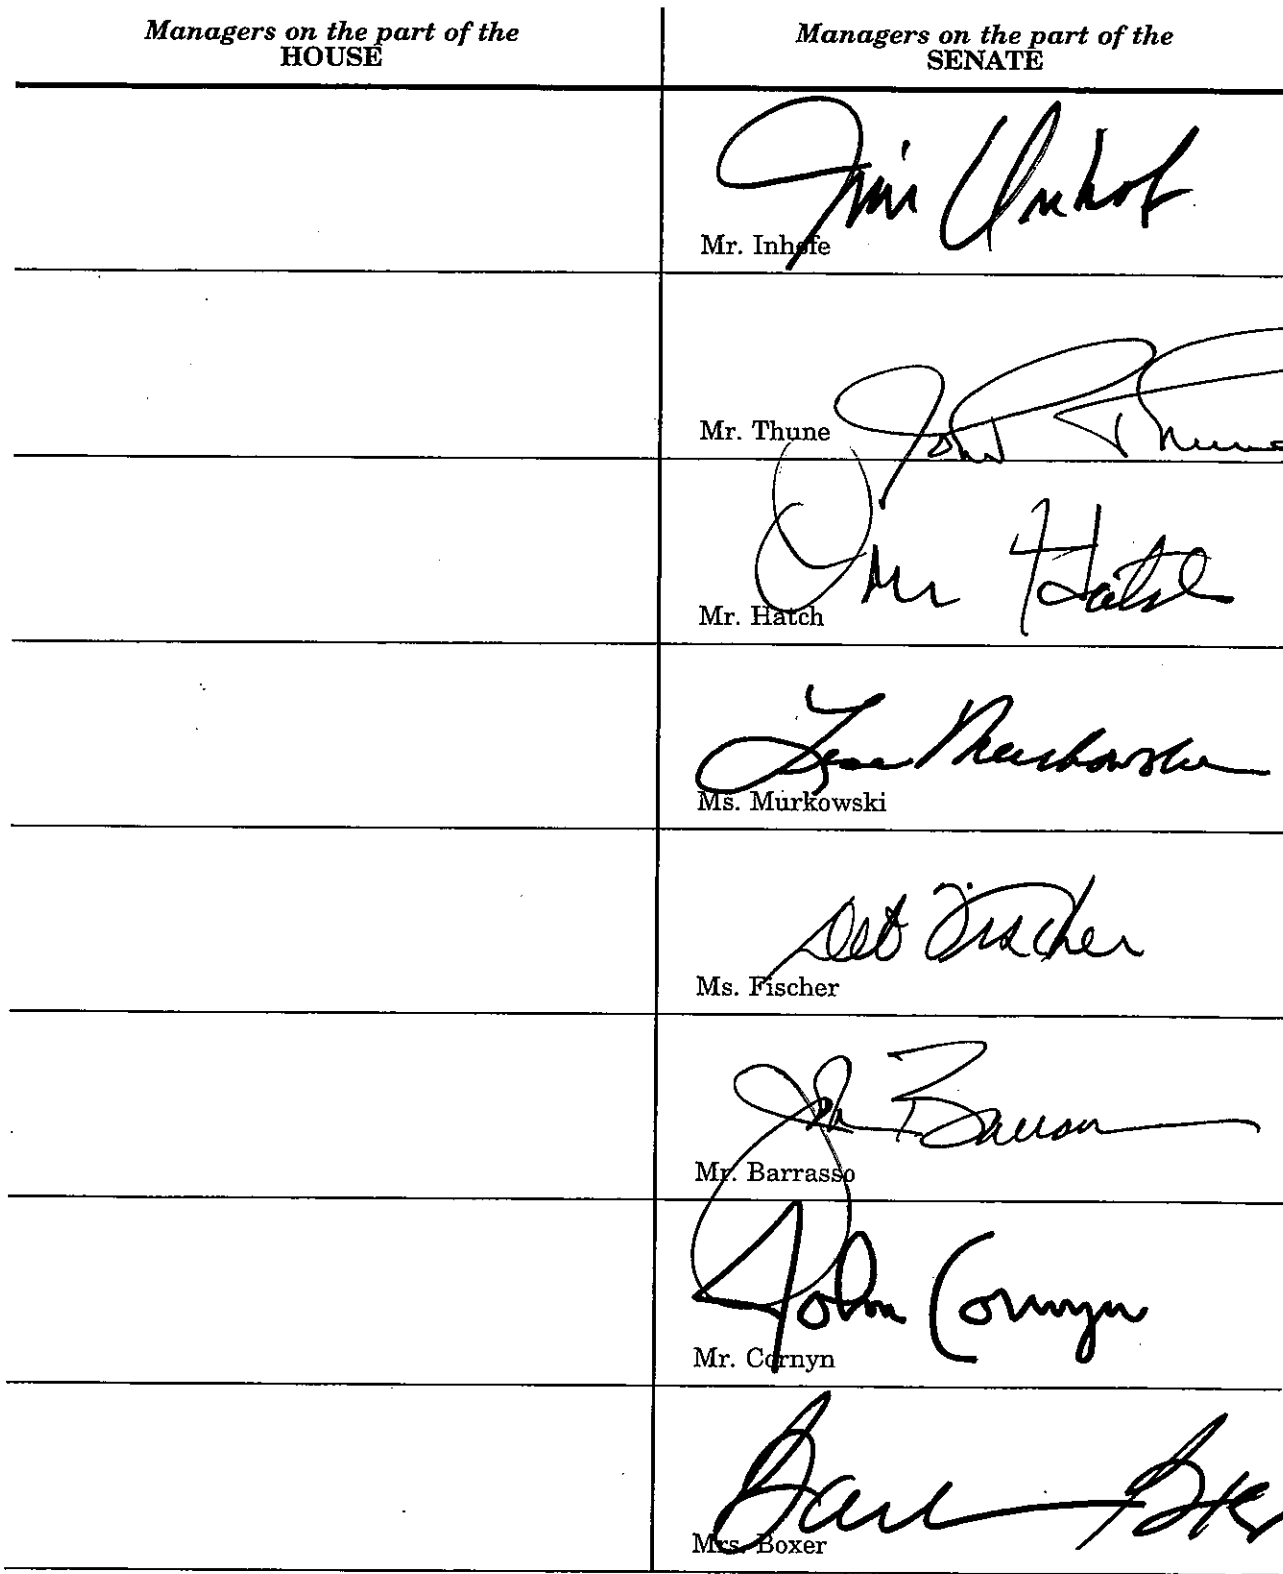 Managers on the part of the
HOUSE
Managers on the part of the
SENATE
Jim Inhofe
Mr. Inhofe
John Thune
Mr. Thune
Orrin Hatch
Mr. Hatch
Lisa Murkowski
Ms. Murkowski
Deb Fischer
Ms. Fischer
John Barrasso
Mr. Barrasso
John Cornyn
Mr. Cornyn
Barbara Boxer
Mrs. Boxer